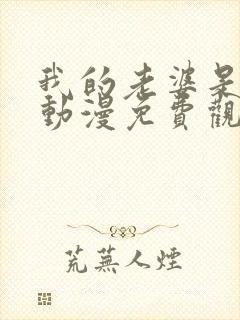 我的老婆是
動漫免費觀
荒蕪人煙